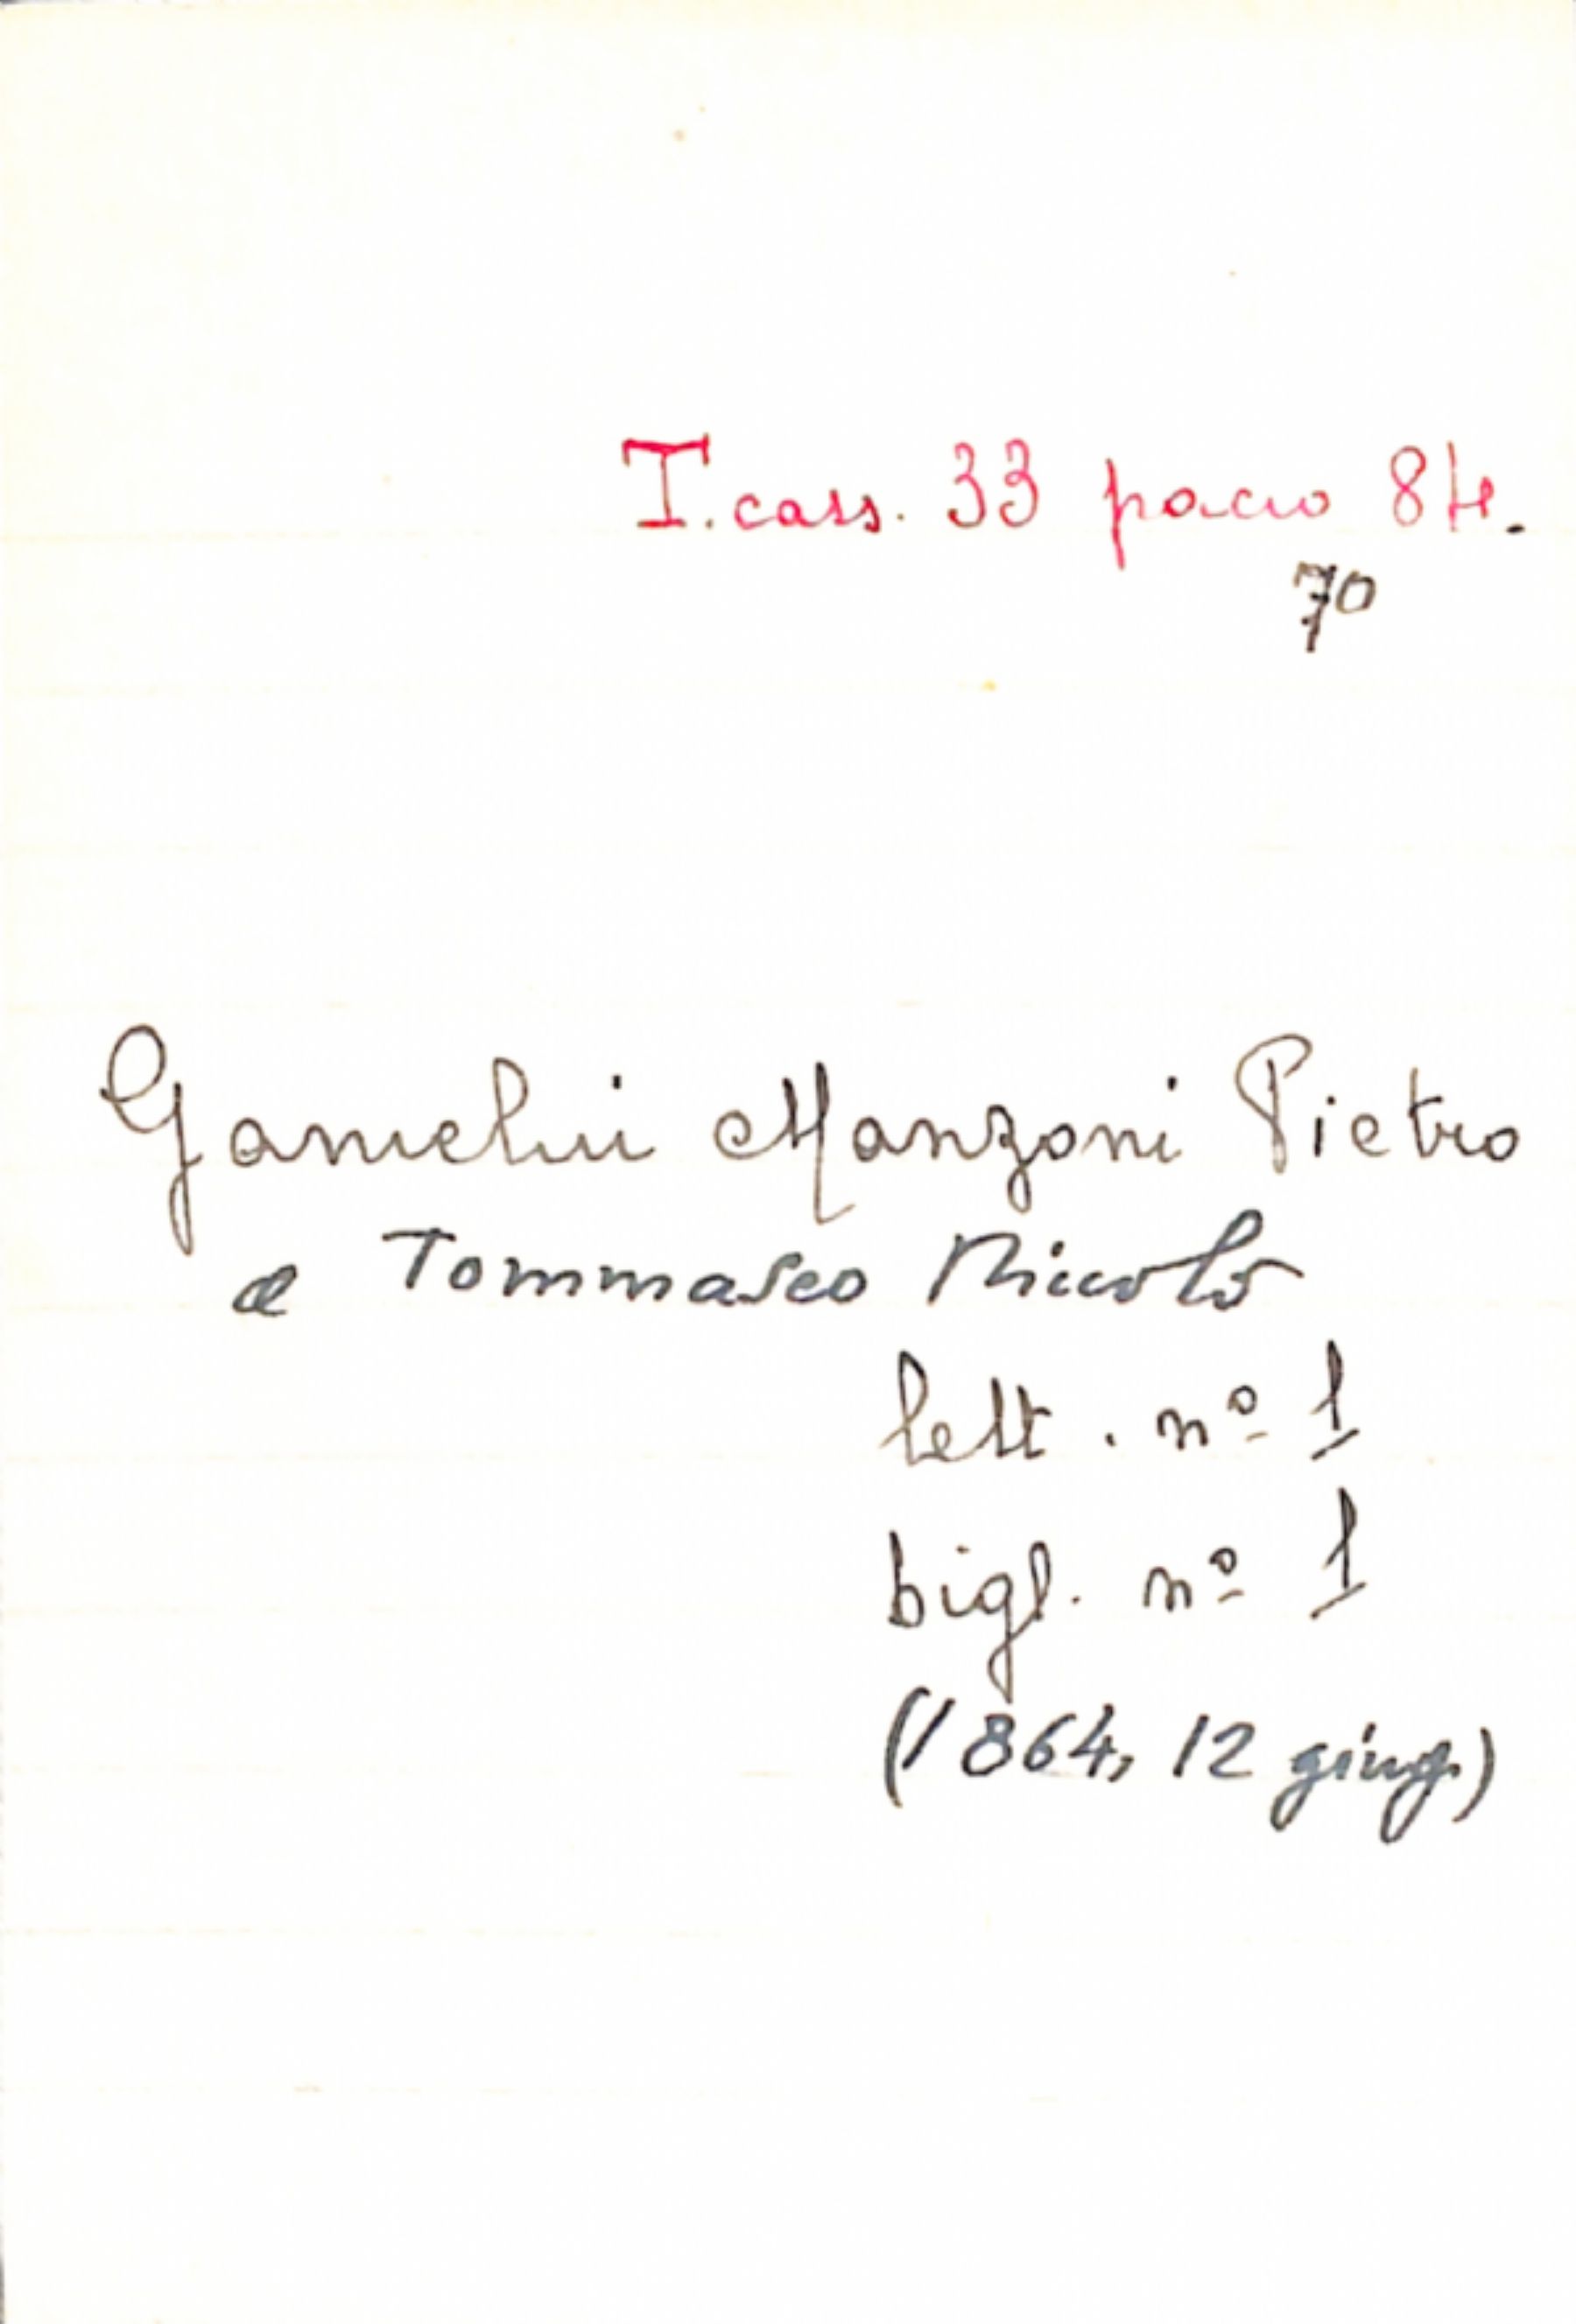 T. cass. 33 pacco 84.
70
Manzoni Pietro
a Tommaseo Niccolò
lett. nº 1
bigl. nº 1
(1864, 12 giug.)